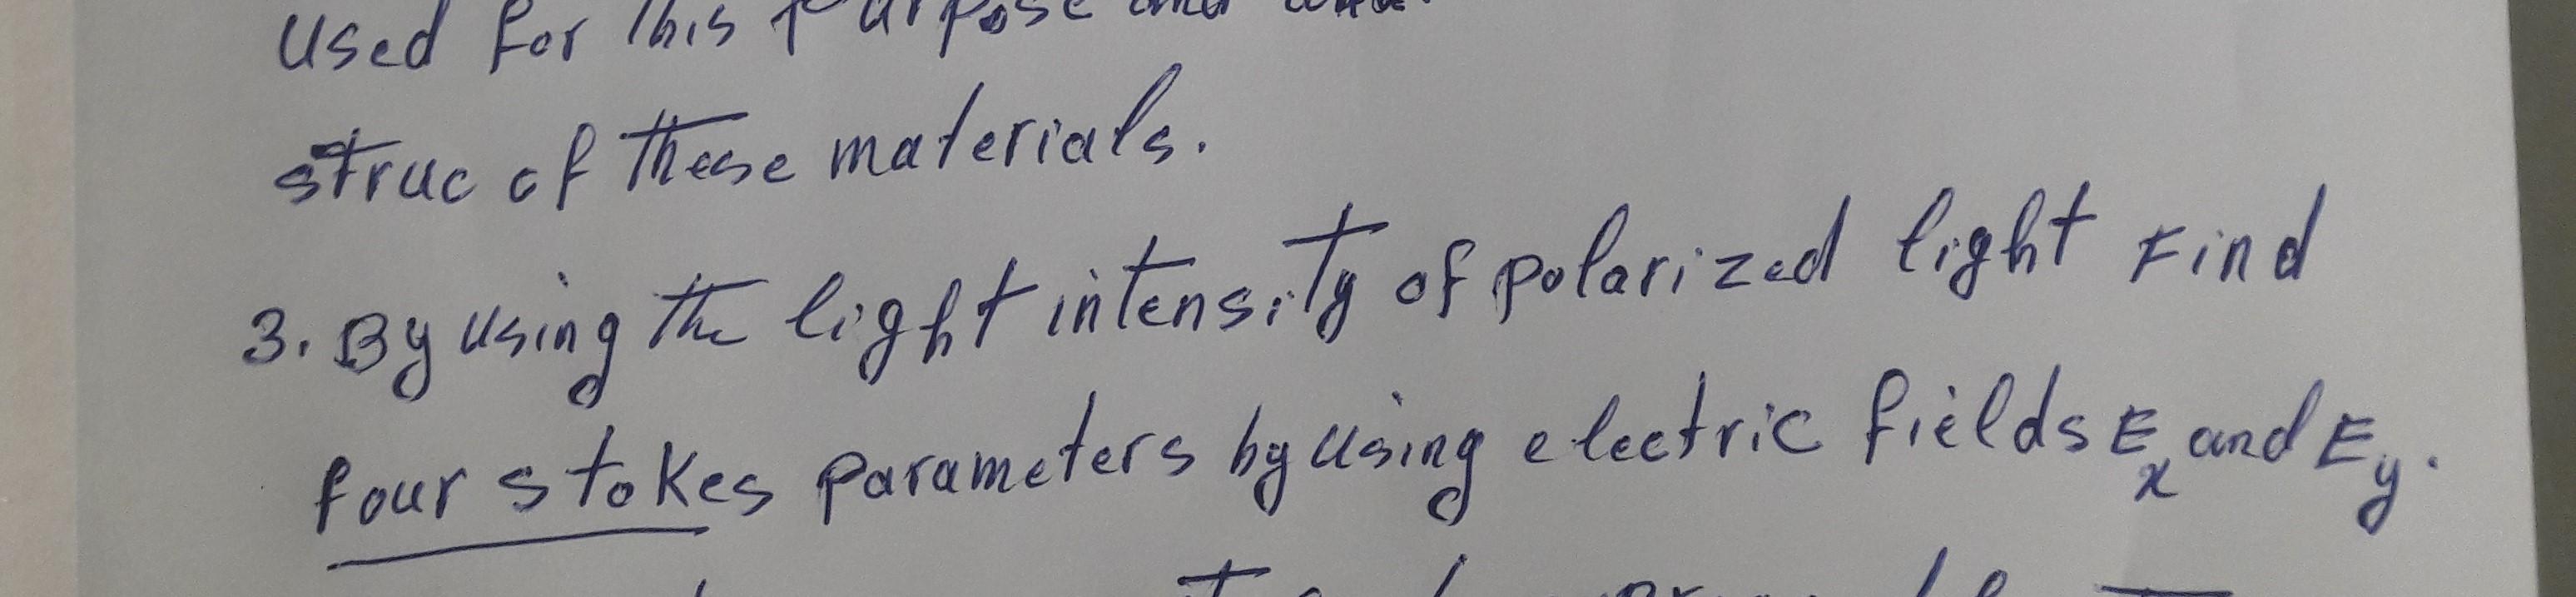 used for this purpose and
struc of these materials.
3. By using the light intensity of polarized light Find
four stokes parameters by using electric fields Ex and Ey.